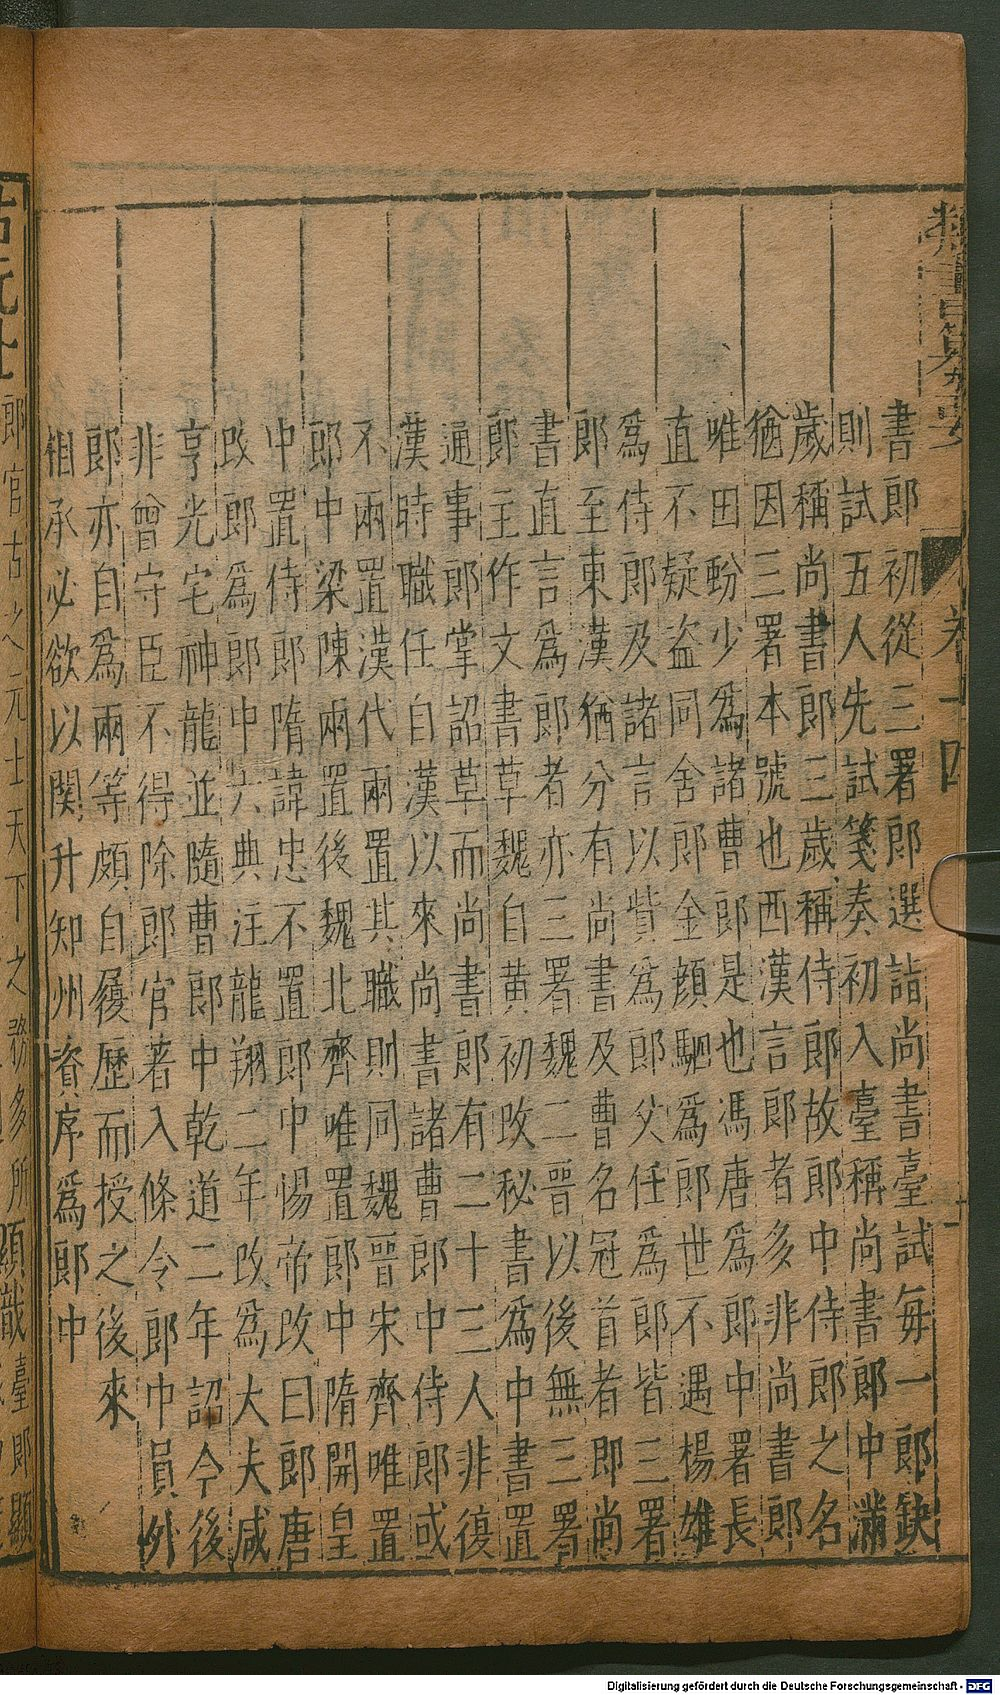 書郎初從三署郎選詣尚書臺試每一郎缺
則試五人先試箋奏初入臺稱尚書郎中滿
歲稱尚書郎三歲稱侍郎故郎中侍郎之名
猶因三署本號也西漢言郎者多非尚書郎
唯田蚡少爲諸曹郎是也馮唐爲郎中署長
直不疑盜同舍郎金顔駟爲郎世不遇楊雄
爲侍郎及諸言以貲爲郎父任爲郎皆三署
郎至東漢猶分有尚書及曹名冠首者即尚
書直言爲郎者亦三署魏二晉以後無三署
郎主作文書草魏自黃初改秘書爲中書置
通事郎掌詔草而尚書郎有二十三人非復
漢時職任自漢以來尚書諸曹郎中侍郎或
不兩置漢代兩置其職則同魏晉宋齊唯置
郎中梁陳兩置後魏北齊唯置郎中隋開皇
中置侍郎隋諱忠不置郎中惕帝改曰郎唐
改郎爲郎中六典注龍翔二年改爲大夫咸
亨光宅神龍並隨曹郎中乾道二年詔今後
非曾守臣不得除郎官著入條令郎中員外
郎亦自爲兩等頗自履歷而授之後來
相承必欲以関升知州資序爲郎中
卷十四
郎官古之元士天下之務多所
顯哉臺郎顯
Digitalisierung gefördert durch die Deutsche Forschungsgemeinschaft - DFG